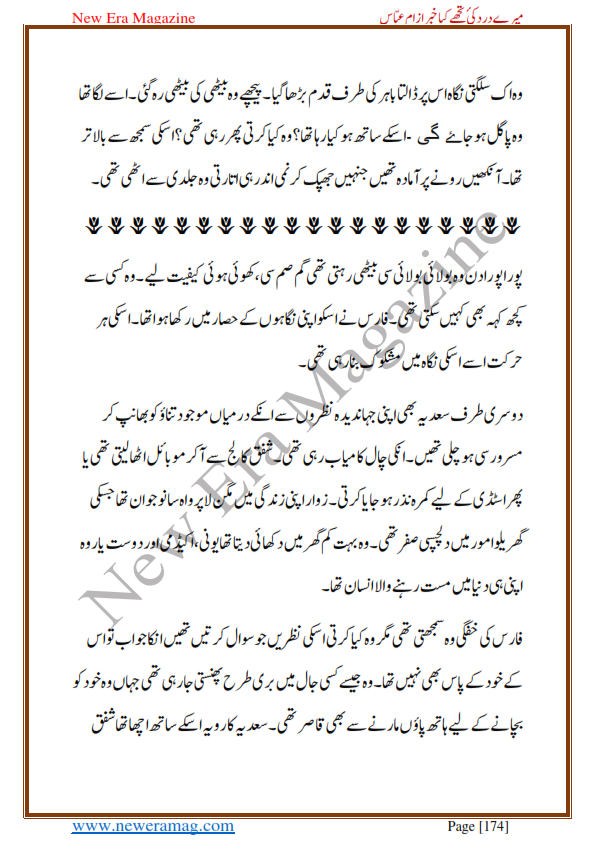 New Era Magazine
میرے درد کی تجھے کیا خبر از ام عباس
وہ اک سلگتی نگاہ اس پر ڈالتا باہر کی طرف قدم بڑھا گیا۔ پیچھے وہ بیٹھی کی بیٹھی رہ گئی۔ اسے لگا تھا
وہ پاگل ہو جائے گی ۔ اسکے ساتھ ہو کیا رہا تھا؟ وہ کیا کرتی پھر رہی تھی؟ اسکی سمجھ سے بالا تر
تھا۔ آنکھیں رونے پر آمادہ تھیں جنہیں جھپک کر نمی اندر ہی اتارتی وہ جلدی سے اٹھی تھی۔
پورا پورا دن وہ بولائی بولائی سی بیٹھی رہتی تھی گم صم سی، کھوئی ہوئی کیفیت لیے۔ وہ کسی سے
کچھ کہہ بھی کہیں سکتی تھی۔ فارس نے اسکو اپنی نگاہوں کے حصار میں رکھا ہوا تھا۔ اسکی ہر
حرکت اسے اسکی نگاہ میں مشکوک بنا رہی تھی۔
دوسری طرف سعدیہ بھی اپنی جہاندیدہ نظروں سے انکے درمیاں موجود تناؤ کو بھانپ کر
مسرور سی ہو چلی تھیں۔ انکی چال کامیاب رہی تھی۔ شفق کالج سے آکر موبائل اٹھا لیتی تھی یا
پھر اسٹڈی کے لیے کمرہ نذر ہو جایا کرتی۔ زوار اپنی زندگی میں مگن لاپرواہ سا نوجوان تھا جسکی
گھریلو امور میں دلچسپی صفر تھی۔ وہ بہت کم گھر میں دکھائی دیتا تھا یونی، اکیڈمی اور دوست یار وہ
اپنی ہی دنیا میں مست رہنے والا انسان تھا۔
فارس کی خفگی وہ سمجھتی تھی مگر وہ کیا کرتی اسکی نظریں جو سوال کرتیں تھیں انکا جواب تو اس
کے خود کے پاس بھی نہیں تھا۔ وہ جیسے کسی جال میں بری طرح پھنستی جا رہی تھی جہاں وہ خود کو
بچانے کے لیے ہاتھ پاؤں مارنے سے بھی قاصر تھی۔ سعدیہ کا رویہ اسکے ساتھ اچھا تھا شفق
New Era Magazine
www.neweramag.com
Page [174]